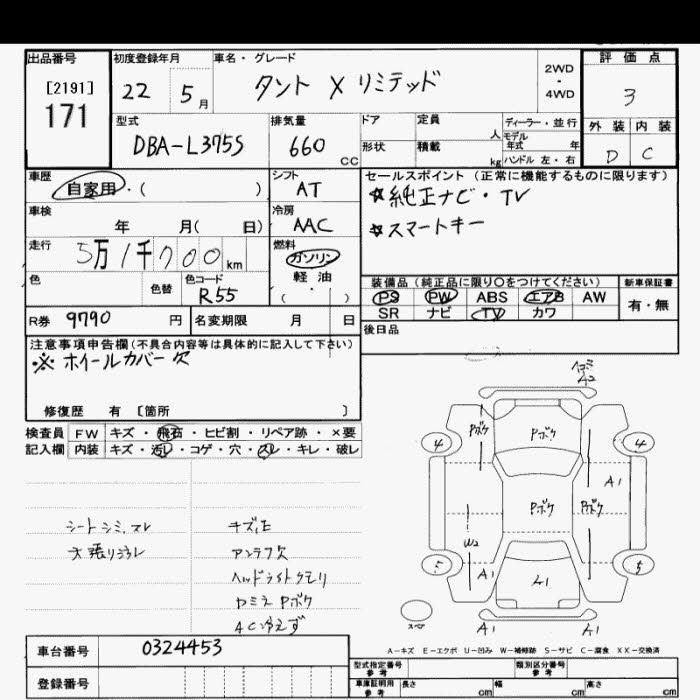 出品番号
[2191]
171
初度登録年月
22 5月
車名・グレード
タント X リミテッド
2WD
・
4WD
評価点
3
外装 内装
D C
型式
DBA-L375S
排気量
660 cc
ドア
形状
定員 人
積載 kg
ディーラー・並行
モデル年式 年
ハンドル 左・右
車歴
自家用・( )
シフト
AT
セールスポイント (正常に機能するものに限ります)
☆純正ナビ・TV
☆スマートキー
車検
年 月( 日)
冷房
AAC
走行
5万1千700km
燃料
ガソリン
軽油
( ・ )
色
色替
色コード
R55
装備品(純正品に限り○をつけてください)
新車保証書
PS PW ABS エアB AW
有・無
SR ナビ TV カワ
R券 9790 円
名変期限 月 日
後日品
注意事項申告欄(不具合内容等は具体的に記入して下さい)
※ ホイールカバー欠
修復歴 有 [箇所 ]
検査員 FW キズ・飛石・ヒビ割・リペア跡・×要
記入欄 内装 キズ・汚レ・コゲ・穴・スレ・キレ・破レ
シートシミ、スレ
天張り汚レ
キズ、E
アンテナ欠
ヘッドライトクモリ
カミラ Pボケ
AC冷えず
A2
Pボケ
Pボケ
4
4
A1
Pボケ
Pボケ
W2
5
5
A1
A1
A1
スペア
A1
A-キズ E-エクボ U-凹み W-補修跡 S-サビ C-腐食 XX-交換済
車台番号 0324453
登録番号
型式指定番号 参考
類別区分番号 参考
車庫証明用 参考
長さ cm
幅 cm
高さ cm